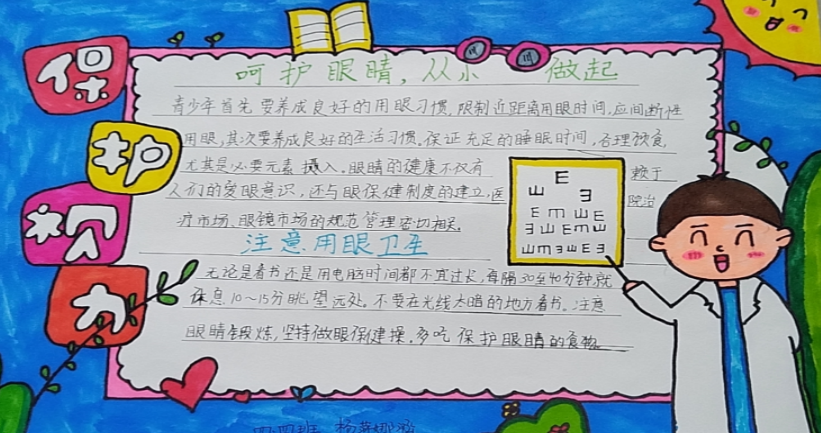 保护视力
呵护眼睛,从小 做起
青少年首先要养成良好的用眼习惯,限制近距离用眼时间,应间断性
用眼,其次要养成良好的生活习惯,保证充足的睡眠时间,合理饮食,
尤其是必要元素摄入。眼睛的健康不仅有 赖于
人们的爱眼意识,还与眼保健制度的建立,医 院治
疗市场、眼镜市场的规范管理密切相关。
注意用眼卫生
无论是看书还是用电脑时间都不宜过长,每隔30至40分钟就
休息10~15分眺望远处。不要在光线太暗的地方看书。注意
眼睛锻炼,坚持做眼保健操。多吃保护眼睛的食物。
E
Ш Ǝ
E m Ш E
Ǝ Ш E m Ш
Ш m Ǝ Ш E Ǝ
四四班 杨